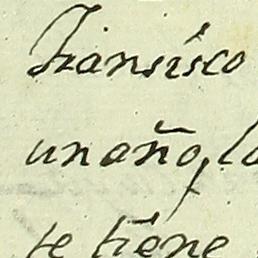 Fransisco
unaño, lo
te tiene